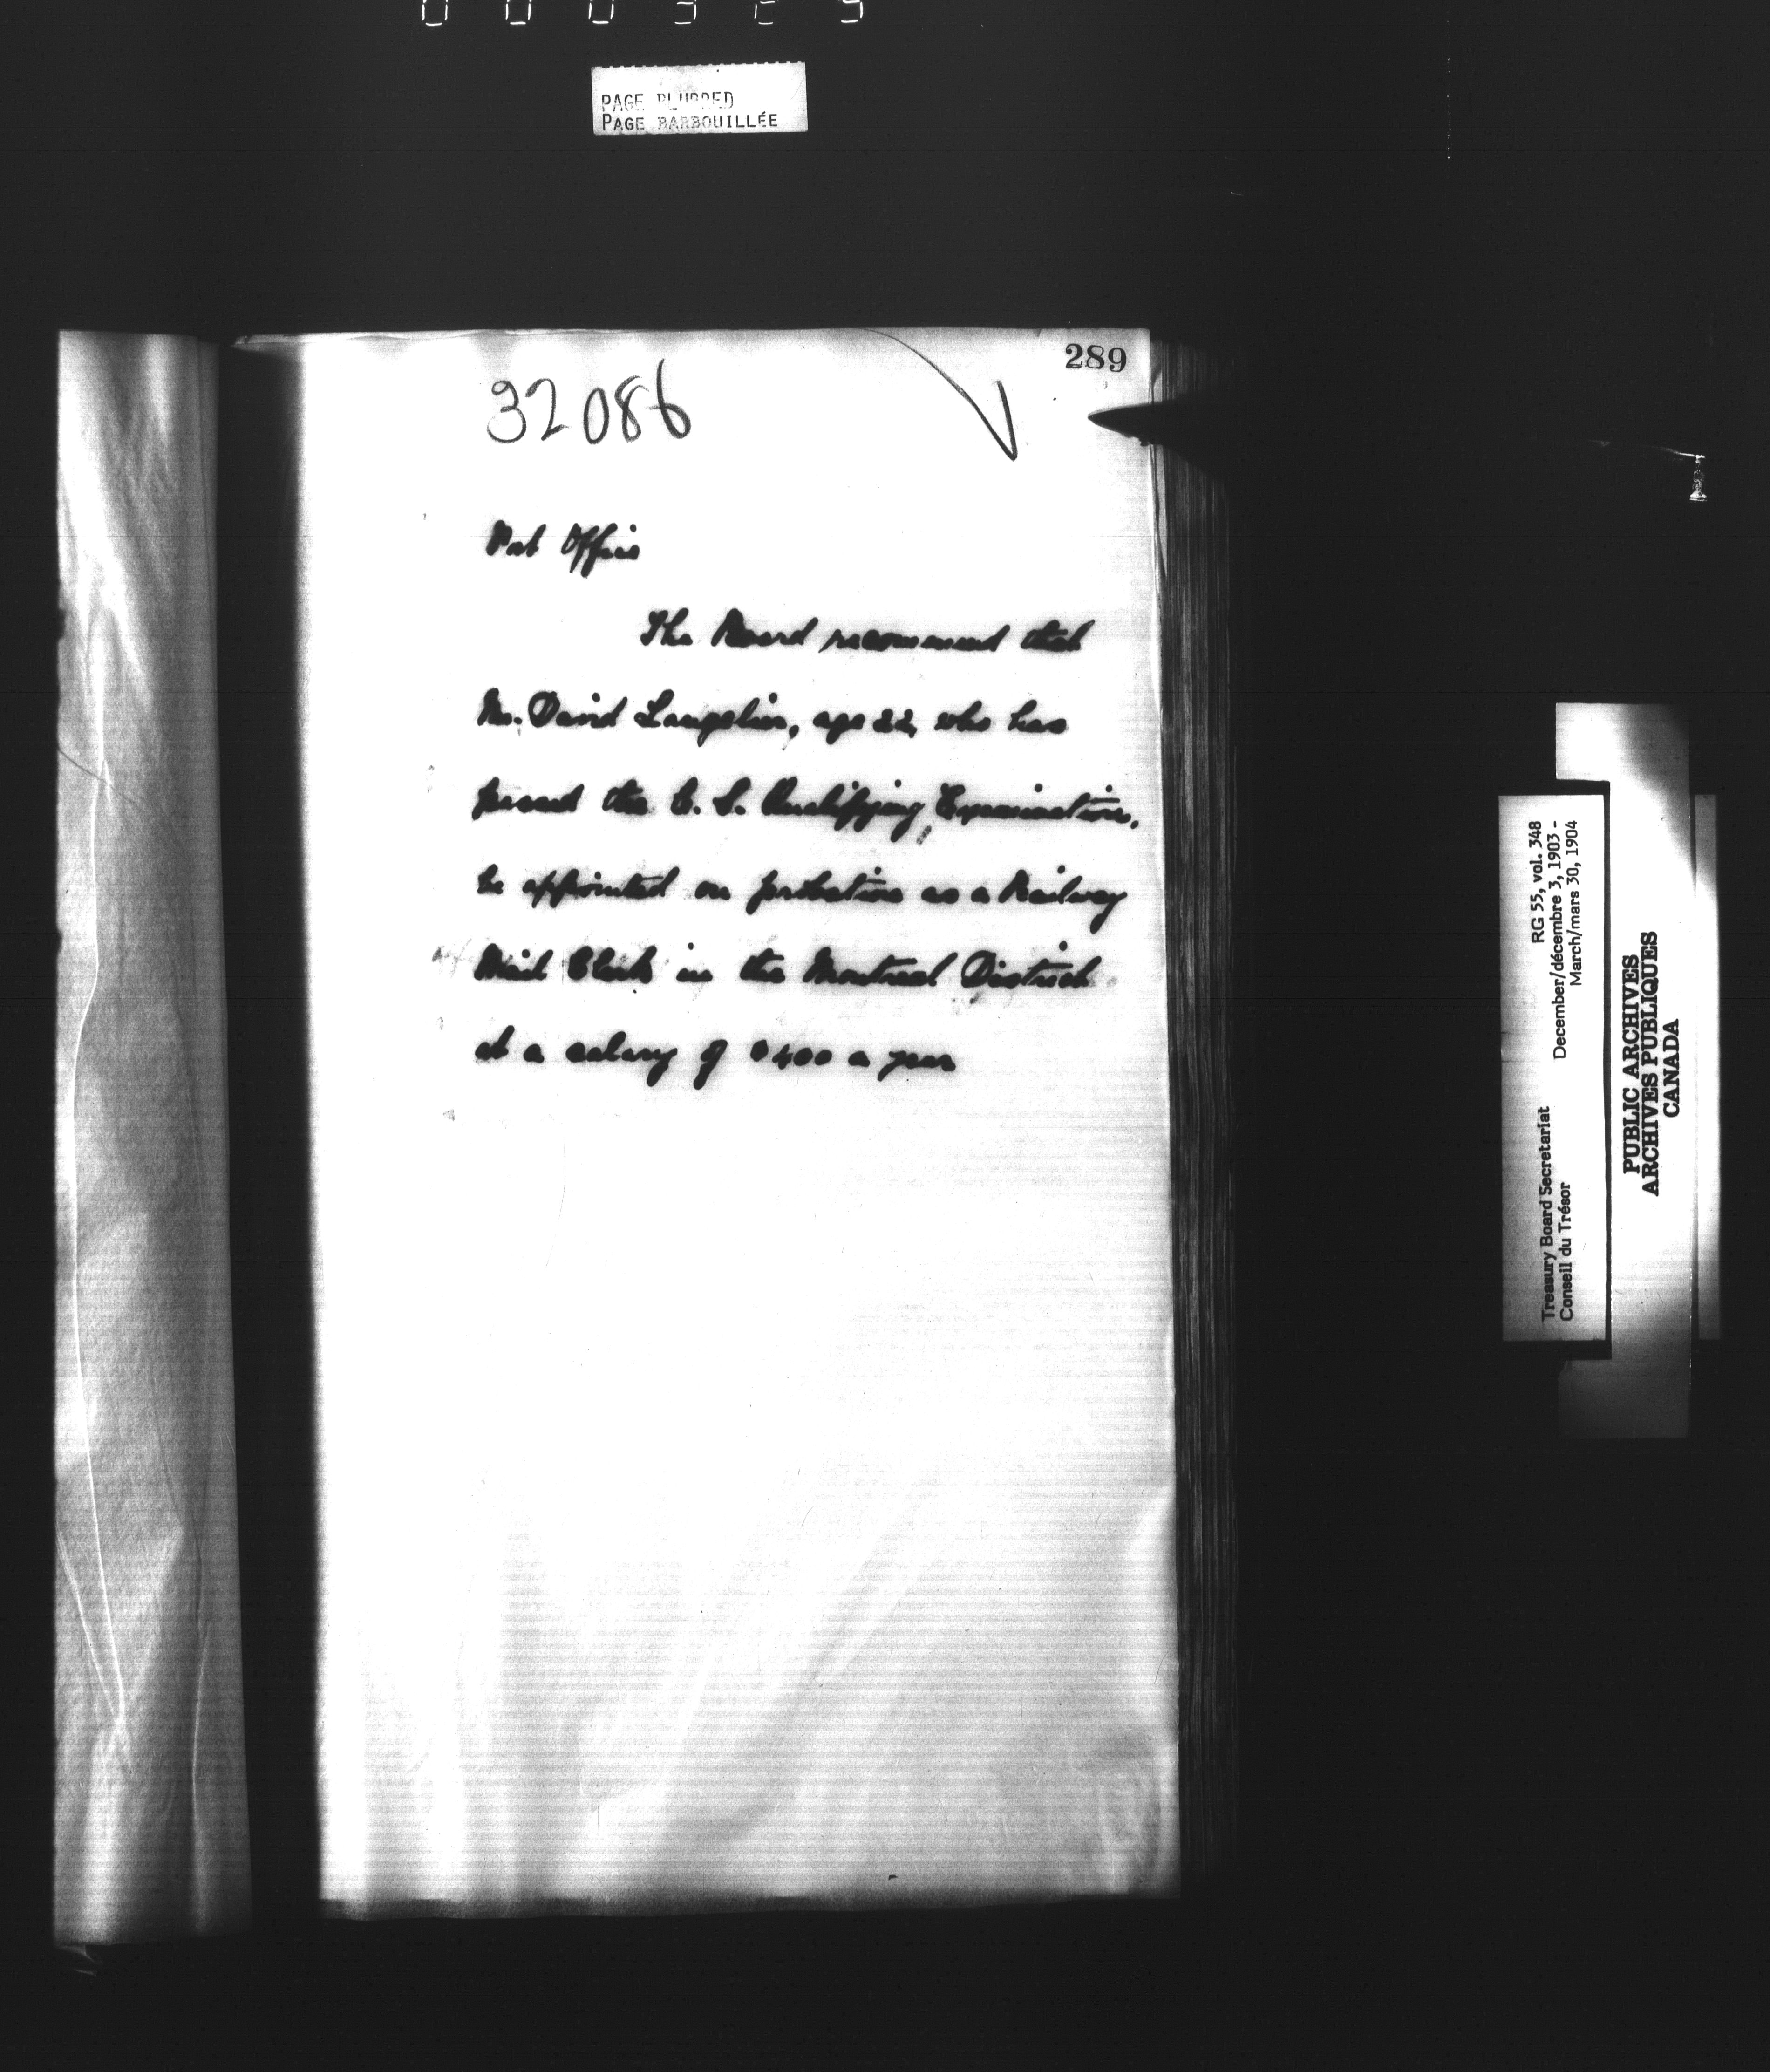 PAGE BLURRED
PAGE BARBOUILLÉE
289
32086
Post Office
The Board recommend that
Mr. David Langelier, age 22, who has
passed the C. S. Qualifying Examination,
be appointed on probation as a Railway
Mail Clerk in the Montreal District
at a salary of $400 a year
RG 55, vol. 348
December/décembre 3, 1903 -
March/mars 30, 1904
Treasury Board Secretariat
Conseil du Trésor
PUBLIC ARCHIVES
ARCHIVES PUBLIQUES
CANADA